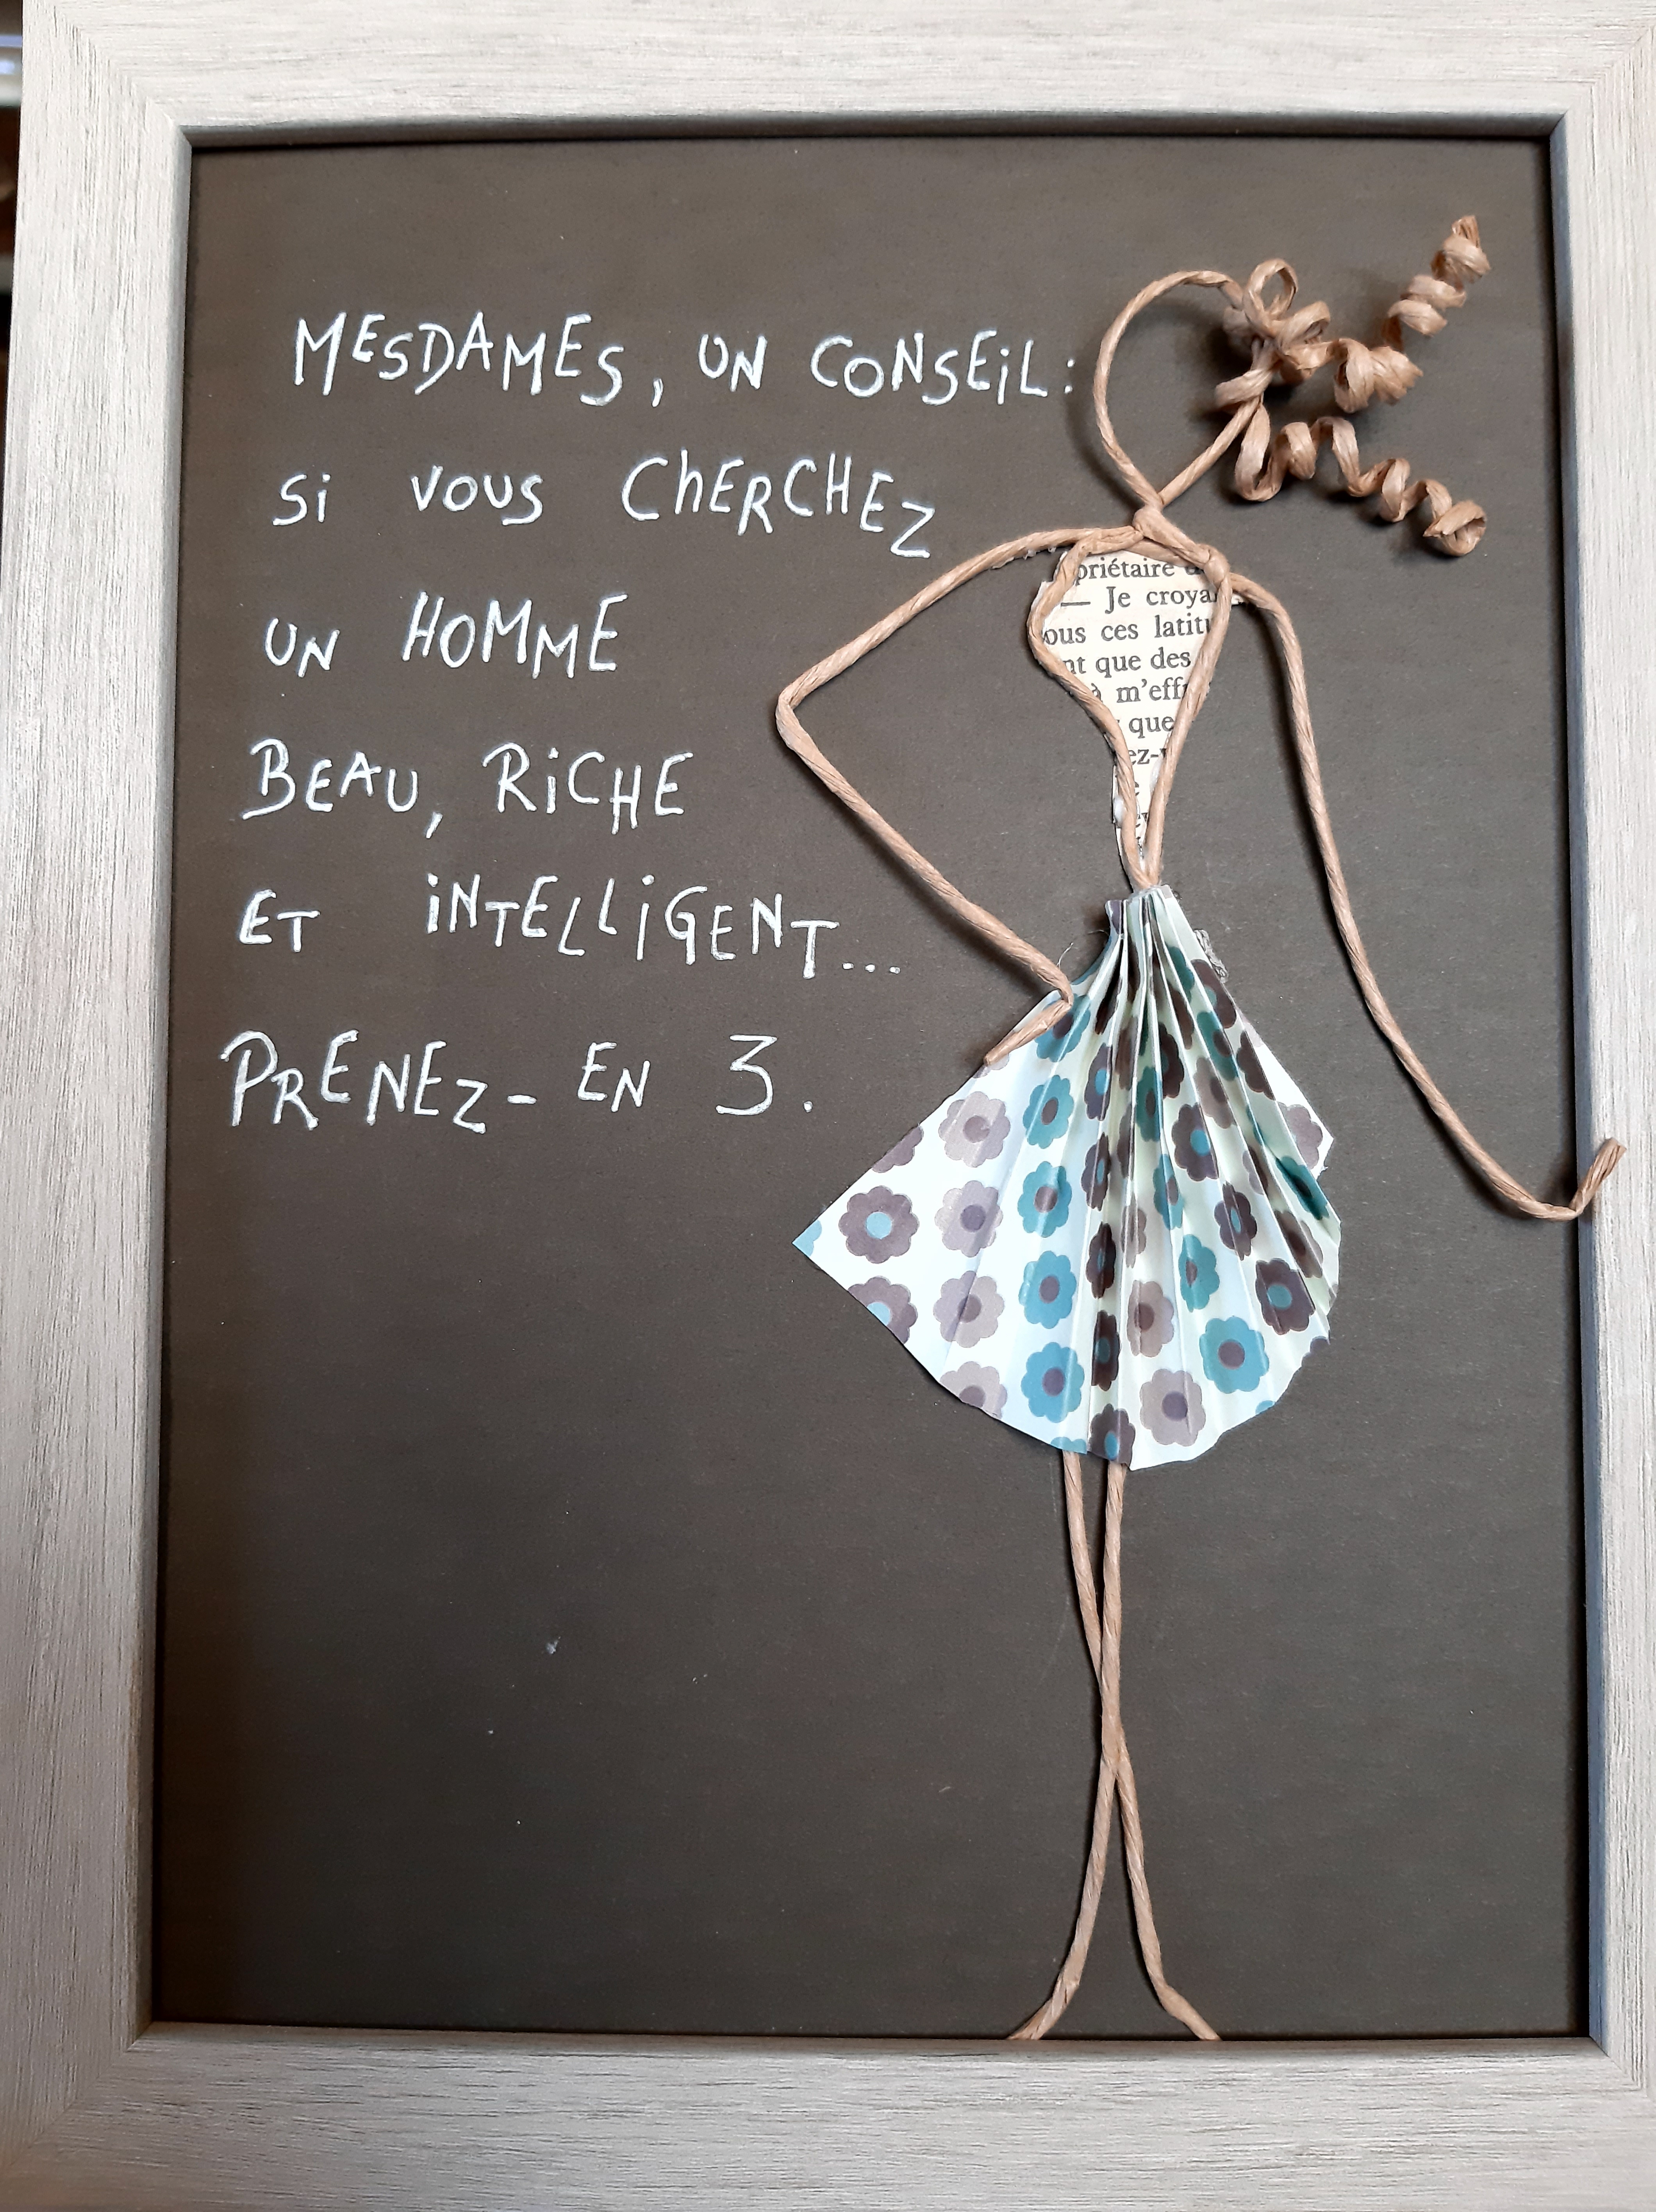 MESDAMES, UN CONSEIL:
Si VOUS CHERCHEZ
UN HOMME
BEAU, RiCHE
ET iNTELLiGENT...
PRENEZ-EN 3.
priétaire
— Je
ous ces
que des
à
que